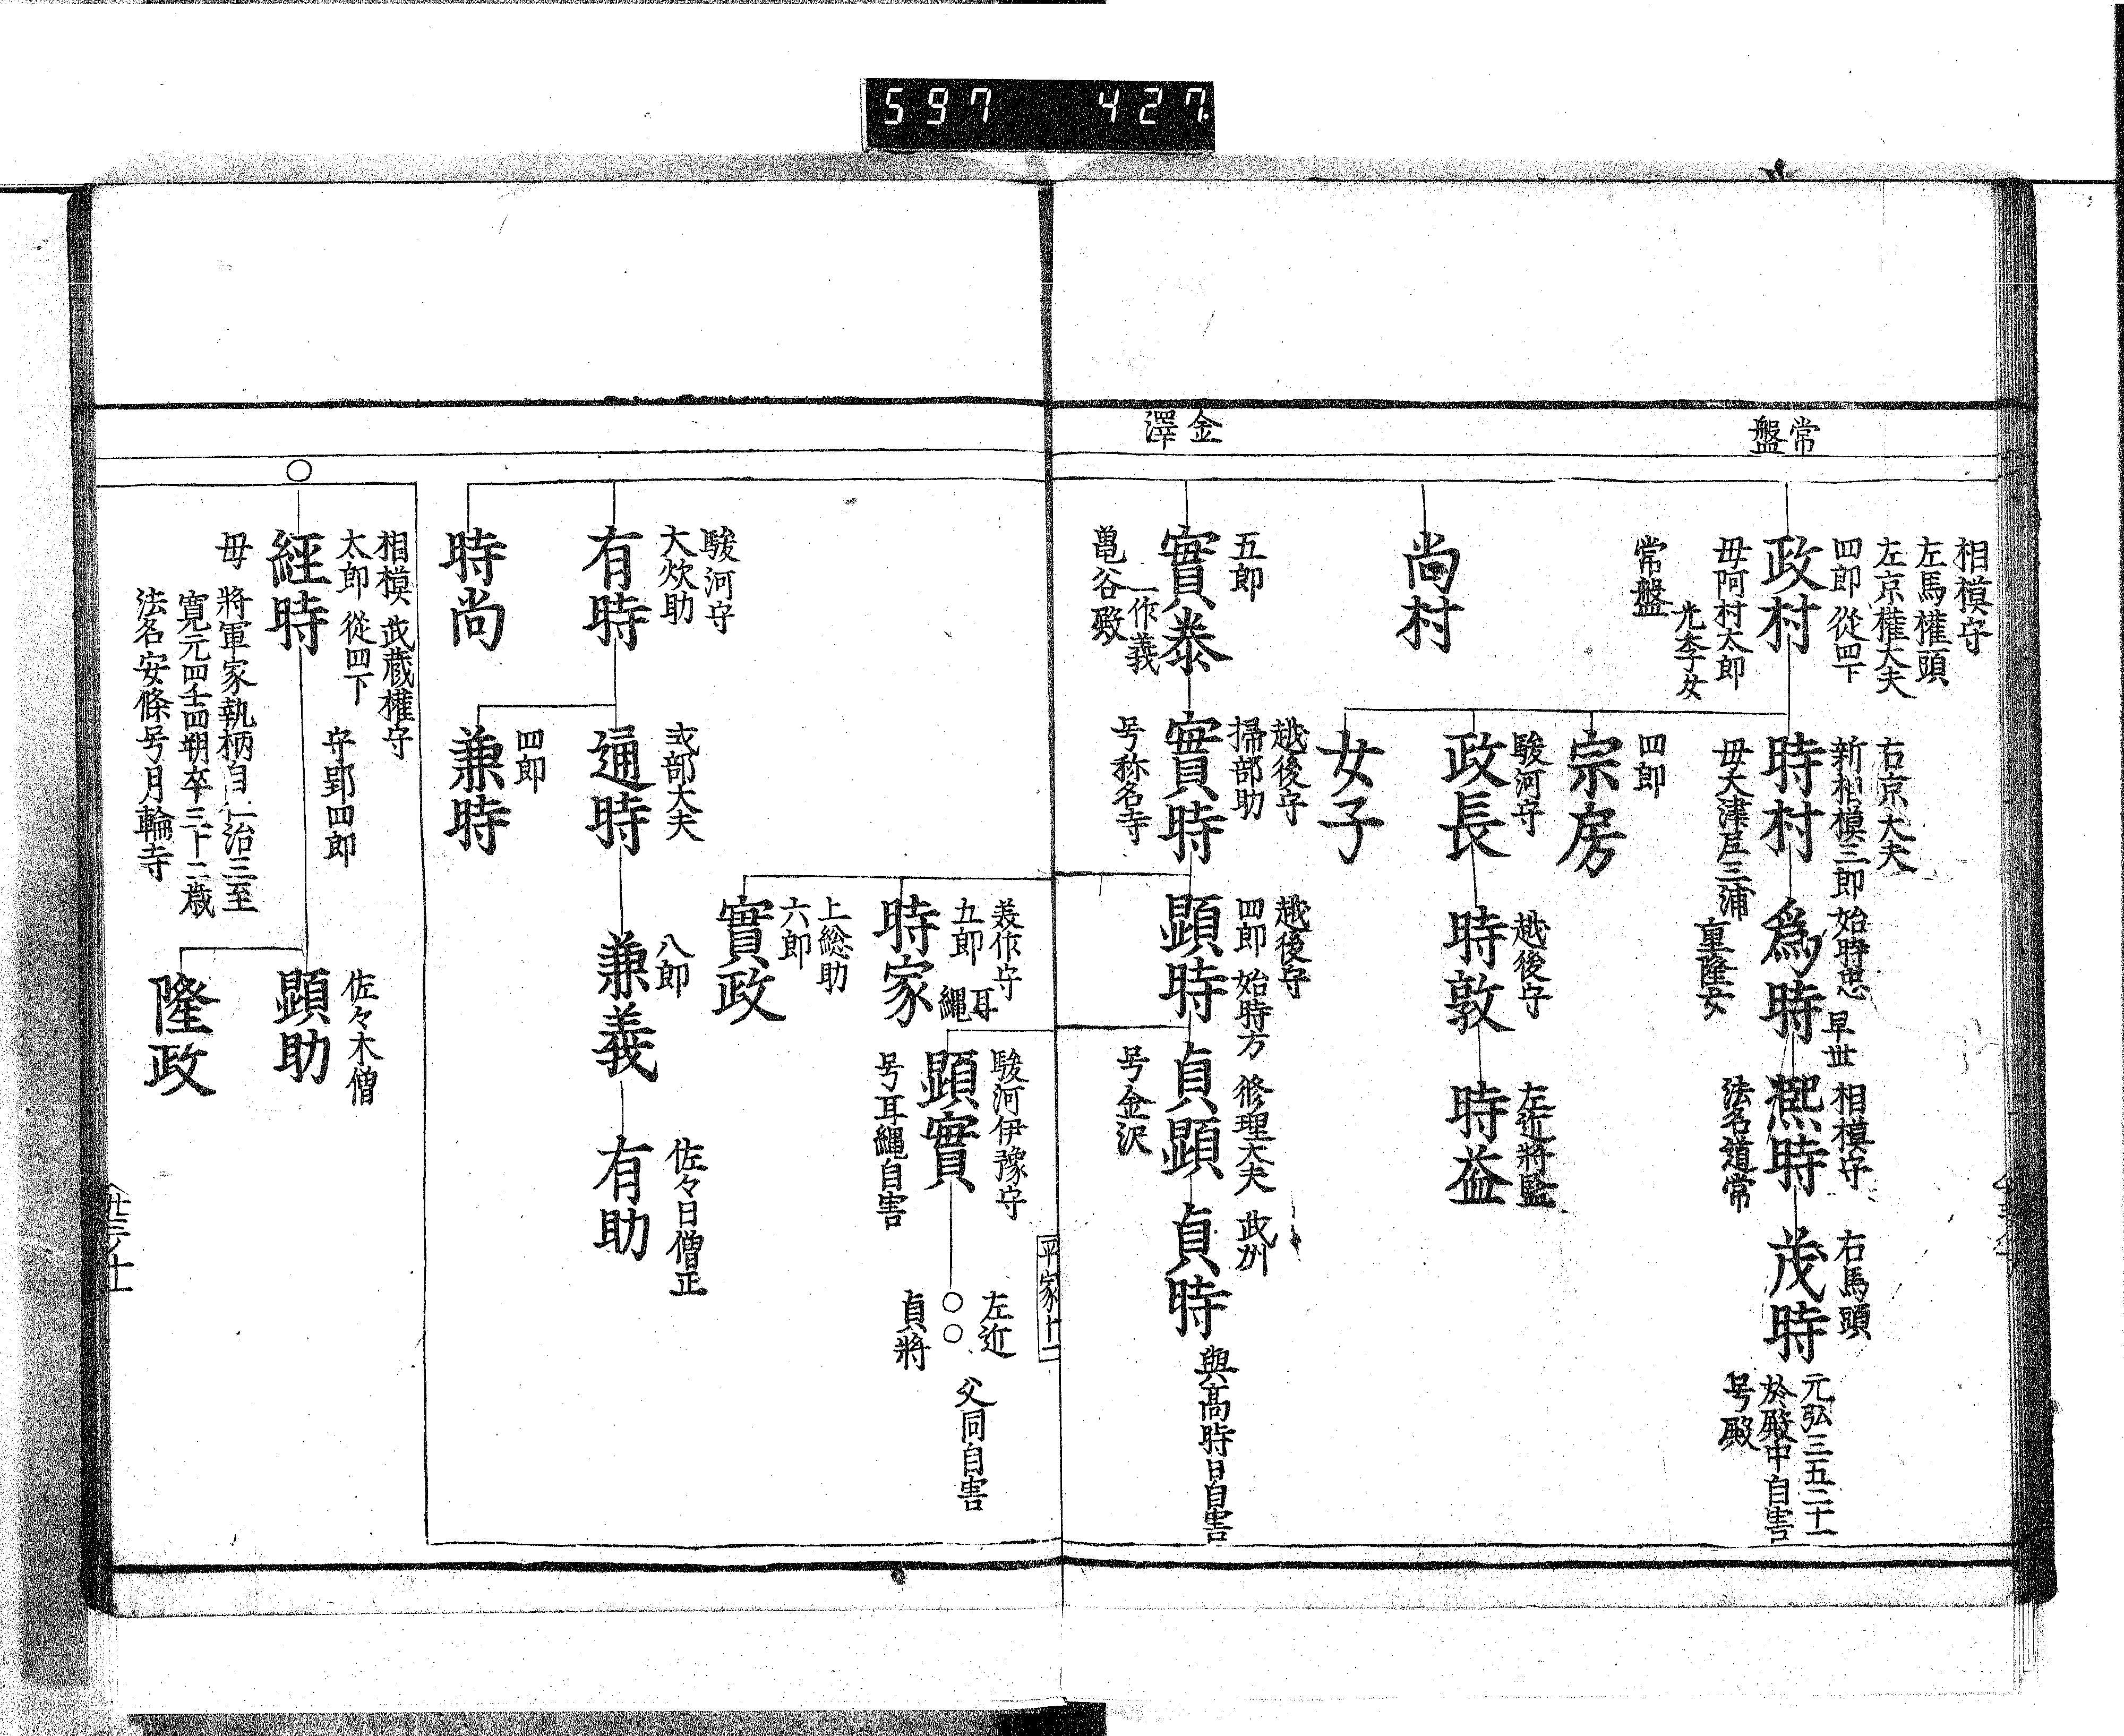 597 427
常盤
相模守
左馬權頭
左京權大夫
四郎 從四下
政村
母阿村太郎
光李女
常盤
右京大夫
新相模三郎 始時忠
時村
母大津尾三浦
重隆女
早世
爲時
相模守
熈時
法名道常
右馬頭
茂時
元弘三五二十一
於殿中自害
号殿
四郎
宗房
駿河守
政長
越後守
時敦
左近將監
時益
女子
尚村
金澤
五郎
實泰
一作義
亀谷殿
越後守
掃部助
實時
号称名寺
越後守
四郎 始時方
顕時
修理大夫
貞顕
号金沢
武州
貞時
與高時日自害
平家十二
美作守
五郎
耳縄
時家
駿河伊豫守
顕實
号耳縄自害
左近
○○
貞將
父同自害
上総助
六郎
實政
駿河守
大炊助
有時
式部大夫
通時
八郎
兼義
佐々目僧正
有助
四郎
兼時
時尚
○
相模 武蔵權守
太郎 從四下
經時
母
將軍家執柄自仁治三至
寛元四壬四朔卒三十二歳
法名安條号月輪寺
佐々木僧
顕助
隆政